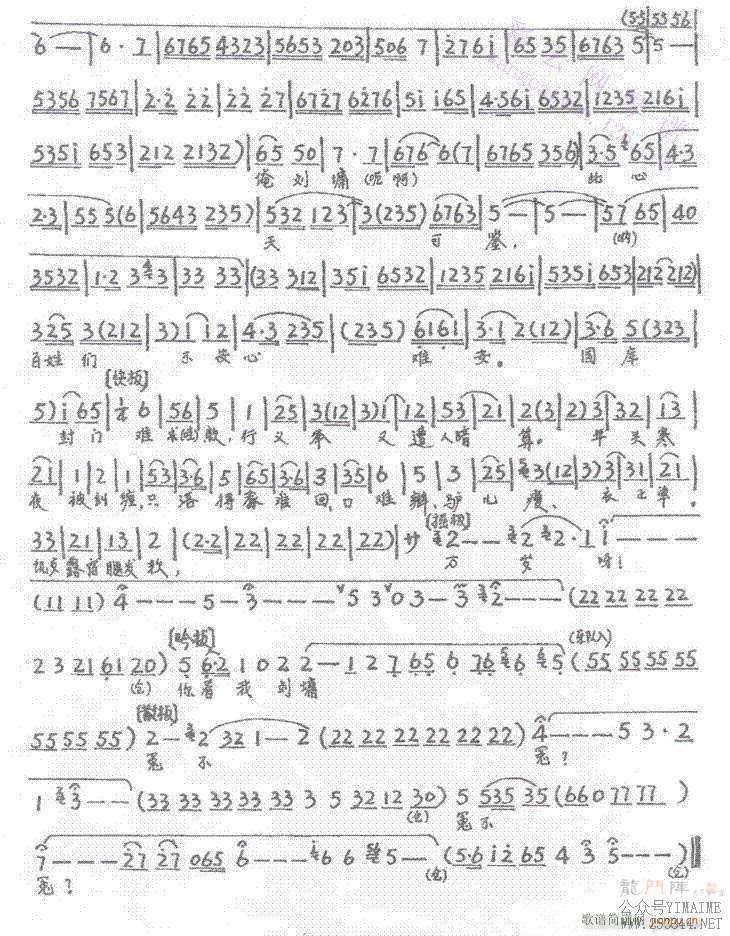 (55 55 56
6 — | 6 · 7 | 6765 4323 | 5653 203 | 506 7 | 276i | 65 35 | 6763 5 | 5 —
5356 7567 | 2·2 22 | 22 27 | 6727 6276 | 5i i65 | 4·56i 6532 | 1235 216i
535i 653 | 212 2132) | 65 50 | 7 · 7 | 676 6(7 | 6765 356) | 3·5 65 | 4·3
俺 刘 墉 (呃啊) 此 心
2·3 | 55 5(6 | 5643 235) | 532 123 | 3(235) 6763 | 5 — | 5 — | 57 65 | 40
天 可 鉴, (呐)
3532 | 1·2 3 3 | 33 33 | (33 312 | 35i 6532 | 1235 216i | 535i 653 | 212 212)
325 3(212 | 3) i i2 | 4·3 235 | (235) 6161 | 3·1 2(12) | 3·6 5(323
百姓 们 不 安 心 难 安。 国 库
[快板]
5) i 65 | 6 | 56 | 5 | 1 | 25 | 3(12 | 3) 1 | 12 | 53 | 21 | 2(3 | 2) 3 | 32 | 13
封 门 难 求 救, 行 义 举 又 遭 人 暗 算。 早 关 寒
21 | 1 | 2 | 1 | 53 | 3·6 | 5 | 65 | 3·6 | 3 | 35 | 6 | 5 | 3 | 25 | 3(12 | 3) 3 | 31 | 21
夜 被 纠 缠, 只 落 得 难 回, 口 难 辩、 驴 儿 瘦、 衣 之 单。
33 | 21 | 13 | 2 | (2·2 | 22 | 22 | 22 | 22 | 22)
露宿 腿发 软,
[摇板]
2 — — 2 2 · 1 i — — —
万 岁 呀!
(11 11) 4 — — — 5 — 3 — — — 5 3 0 3 — 3 2 — — — (22 22 22 22
[吟板] (乐队入)
2 3 21 61 20) 5 6·2 1 0 2 2 2 — 1 2 7 65 6 76 6 5 (55 55 55 55
(仓) 你 看 我 刘 墉
[散板]
55 55 55) 2 — 2 32 1 — 2 (22 22 22 22 22 22) 4 — — — 5 3 · 2
冤 不 冤?
1 3 — — (33 33 33 33 33 3 5 32 12 30) 5 535 35 (660 77 77 )
(仓) 冤 不
7 — — — 27 27 065 6 — — — 6 6 5 — (5·6 i2 65 4 3 5 — — —)
冤? (仓) (仓)
龍門陣
公众号YIMAIME
歌谱简谱网 jianpu.cn
www.253344.NET